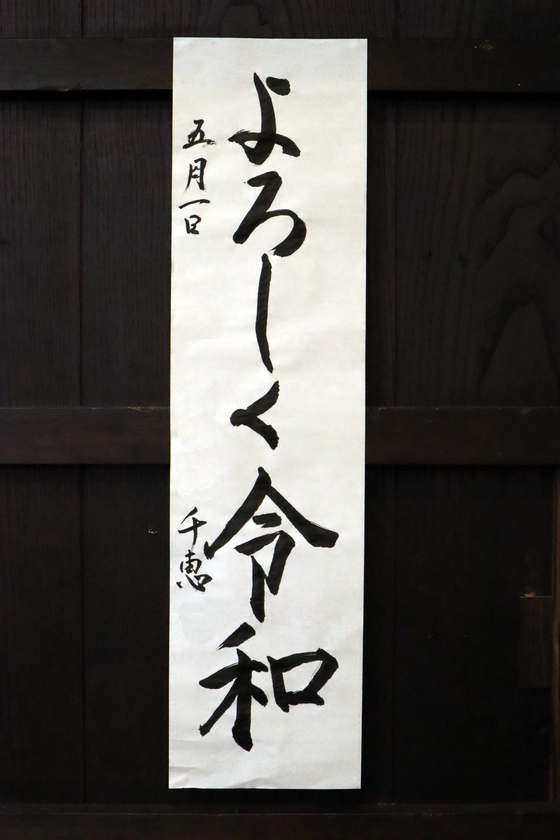 よろしく令和
五月一日
千恵